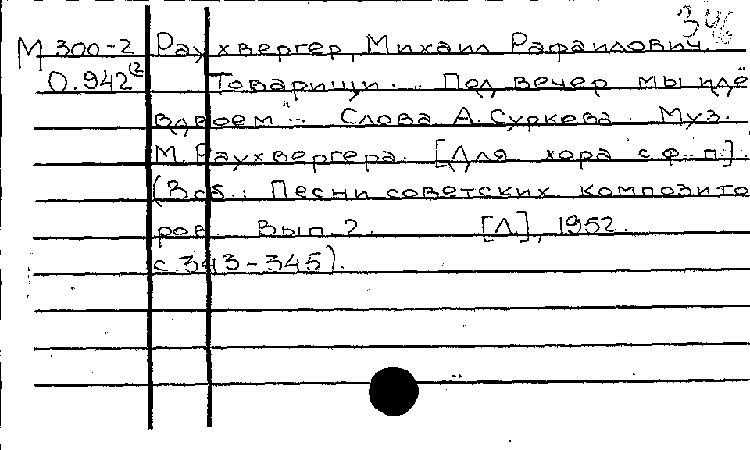 346
М 300-2 Раухвергер, Михаил Рафаилович.
0.942(2 Товарищи. Под вечер мы идё
вдвоем... Слова А. Суркова Муз.
М. Раухвергера. [Для хора с ф-п.].
(В сб.: Песни советских композито
ров Вып. 2. [Л.], 1952.
с. 343-345).